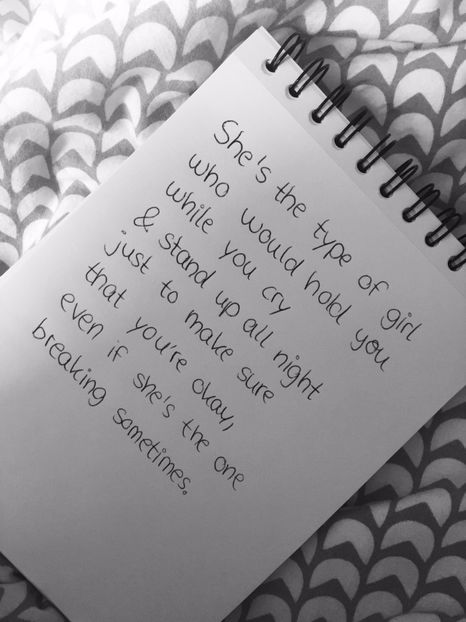 She's the type of girl
who would hold you
while you cry
& stand up all night
just to make sure
that you're okay,
even if she's the one
breaking sometimes.